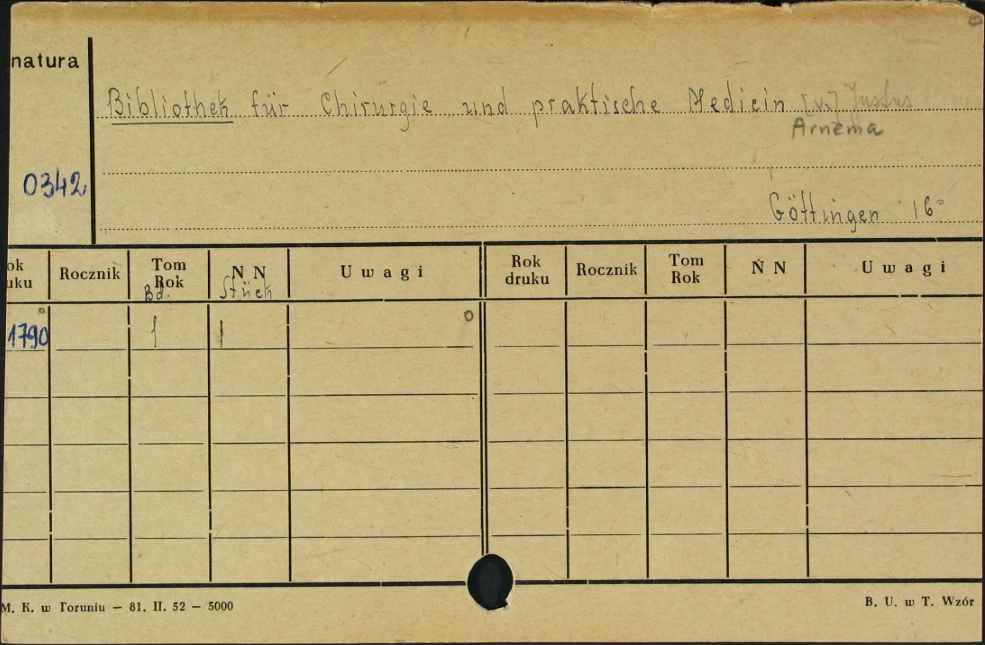 natura
Bibliothek für Chirurgie und praktische Medicin [v.] Justus
Arnema
0342
Göttingen 16°
ok
uku
Rocznik
Tom
Rok
Bd.
N N
Stück
Uwagi
Rok
druku
Rocznik
Tom
Rok
N N
Uwagi
1790 1 1
M. K. w Toruniu — 81. II. 52 — 5000
B. U. w T. Wzór